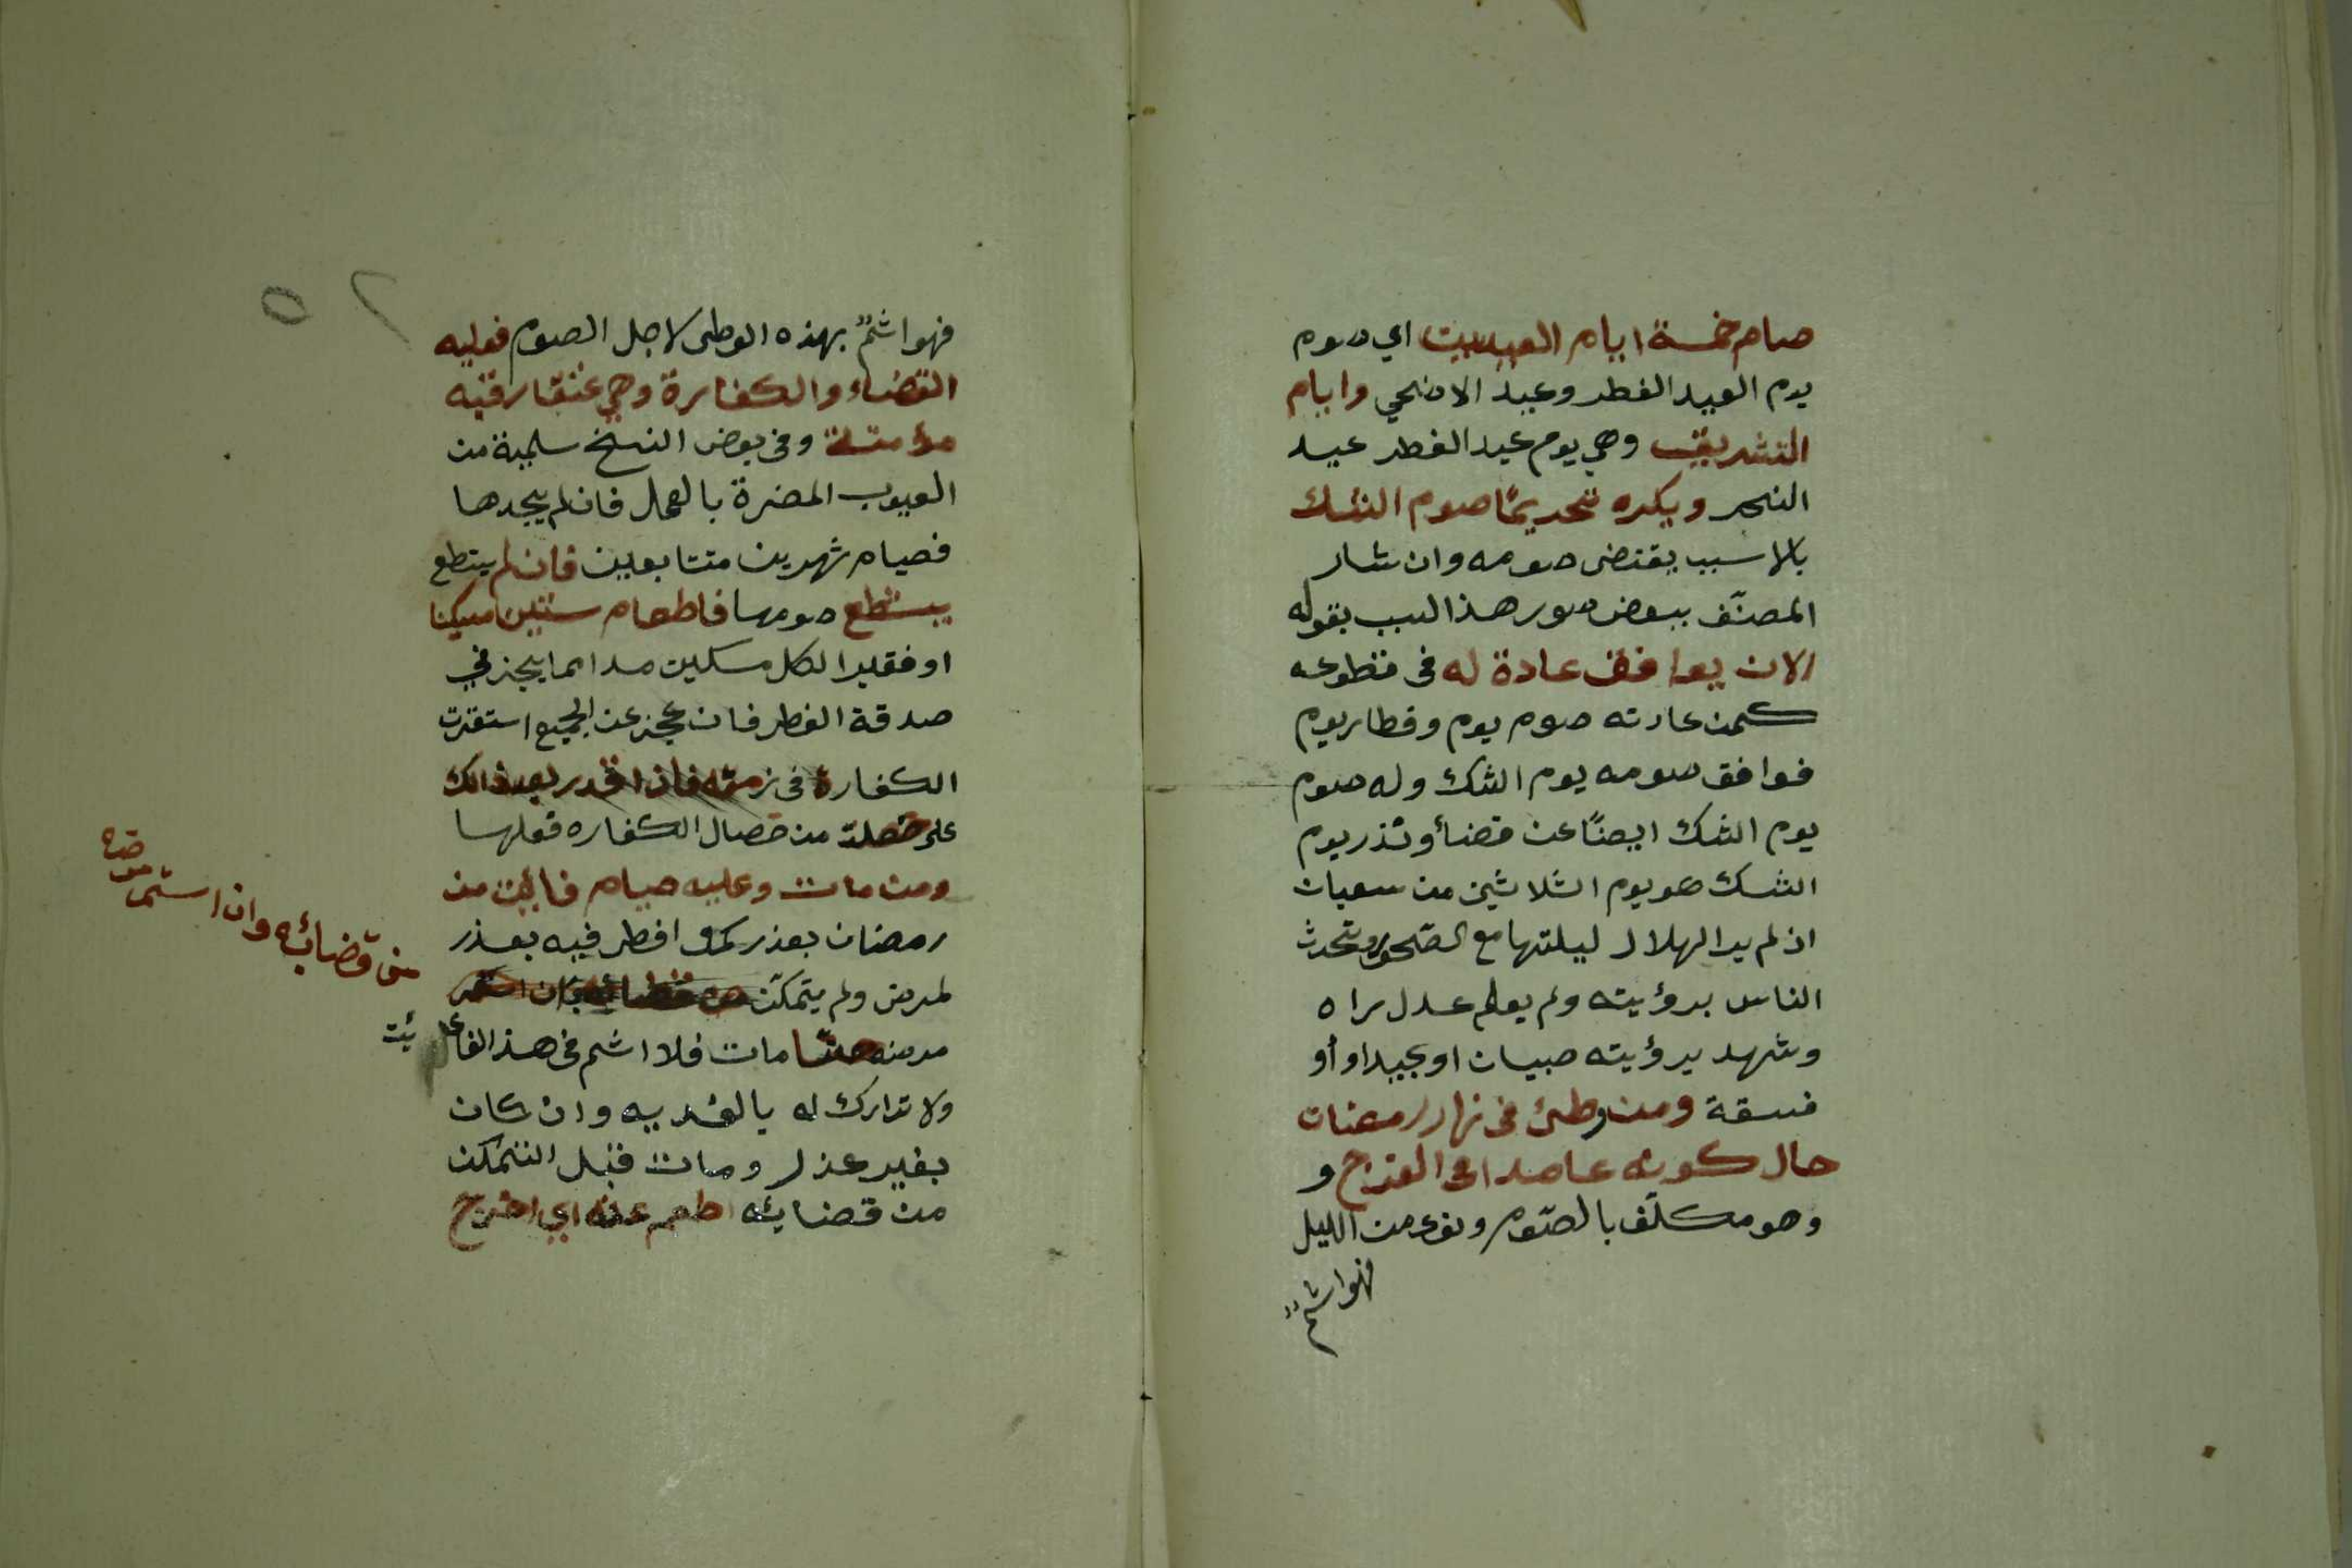 صام خمسة ايام العيدين اي صوم
يوم العيد الفطر وعيد الاضحي وايام
التشريق وهي يوم عيد الفطر عيد
النحر ويكره تحريمًا صوم الشك
بلا سبب يقتضي صومه وان شار
المصنّف ببعض صور هذا السبب بقوله
الان يوافق عادة له في تطوعه
كمن عادته صوم يوم وفطار يوم
فوافق صومه يوم الشك وله صوم
يوم الشك ايضًا عن قضأ ونذر يوم
الشك هو يوم الثلاثين من شعبان
اذ لم ير الهلال ليلتها مع الصّحو وتحدث
الناس برؤيته ولم يعلم عدل راه
وشهد برؤيته صبيان او عبيد او أو
فسقة ومن وطئ في نهار رمضان
حال كونه عامدا في الفرج و
وهو مكلّف بالصّوم ونوى من الليل
فهو اثمٌ
فهو اثمٌ بهذه الوطى لاجل الصوم فعليه
القضاء والكفارة وهي عتق رقبه
مؤمنة وفي بعض النسخ سليمة من
العيوب المضرة بالعمل فان لم يجدها
فصيام شهرين متتابعين فان لم يتطع
يستطع صومها فاطعام ستين مسكينا
او فقيرا لكل مسكين مدا مما يجزي في
صدقة الفطر فان عجز عن الجميع استقرت
الكفارة في زمته فاذا قدر بعد ذالك
على خصلة من خصال الكفاره فعلها
ومن مات وعليه صيام فائت من
رمضان بعذر كمن افطر فيه بعذر
لمرض ولم يتمكّن من قضائه وان استمر
مرضه حتّا مات فلا اثم في هذ الفائ
ئت
ولا تدارك له بالفديه وان كان
بغير عذر ومات قبل التمكن
من قضايئه اطعم عنه اي اخرج
من قضائه وان استمر
مرضه
٥٢